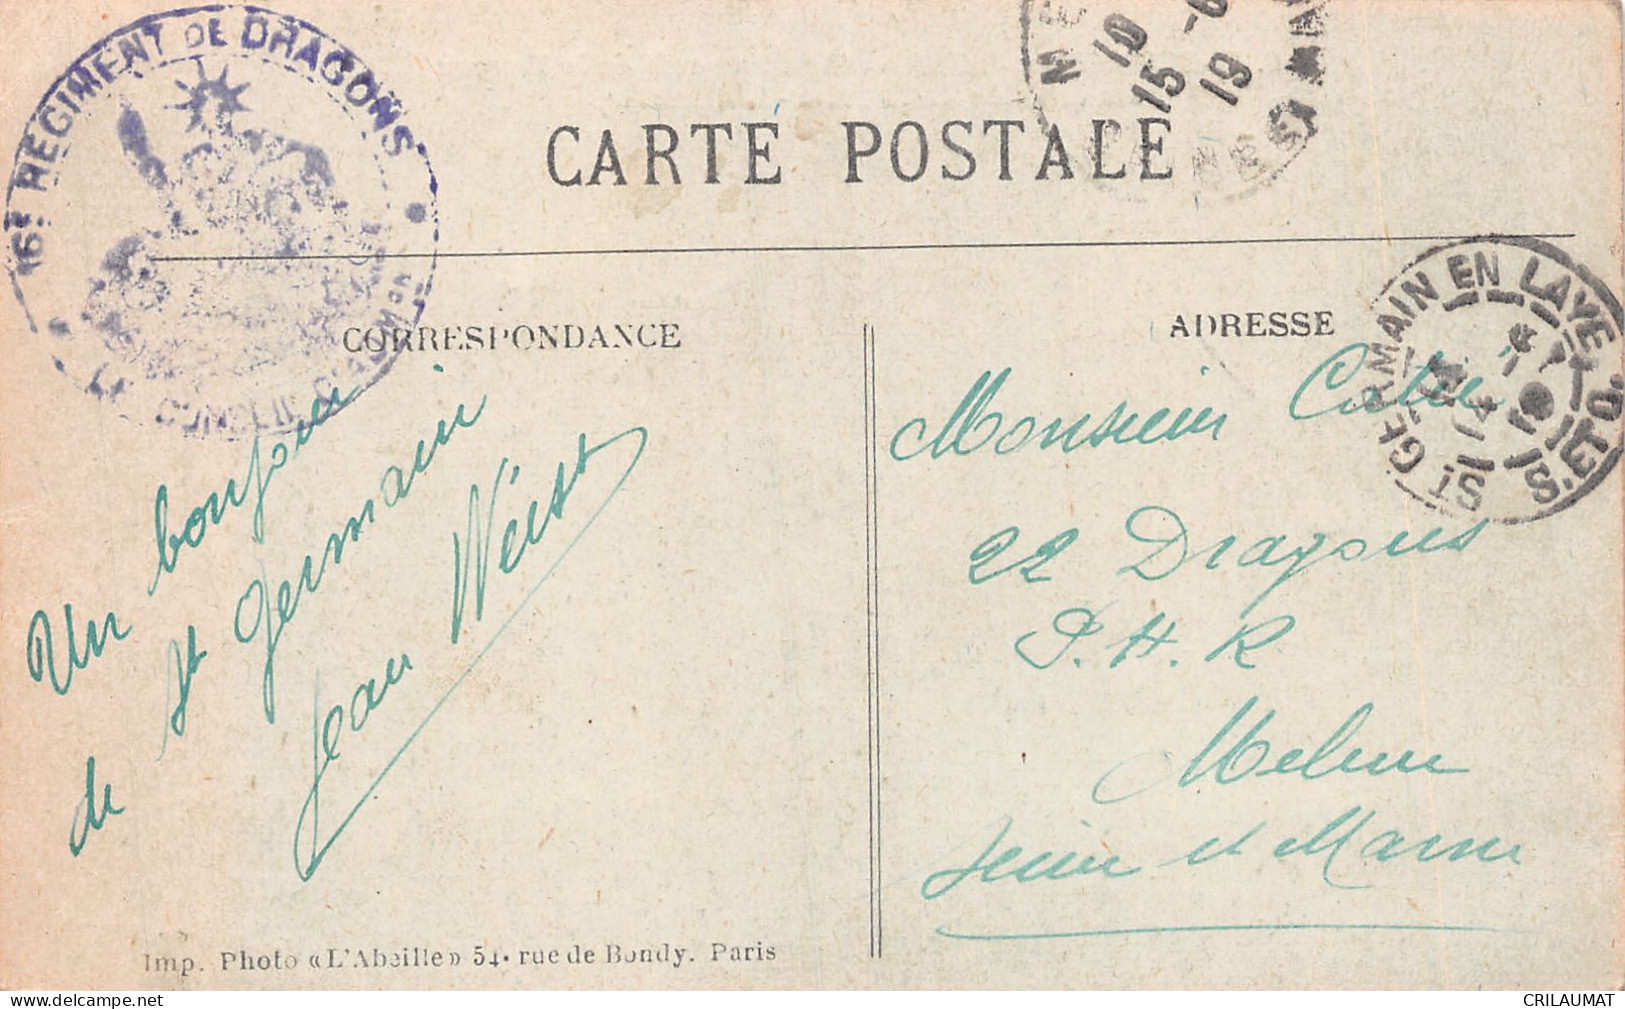 16E REGIMENT DE DRAGONS
LE CONSEIL D'ADMON
10
15-6
19
CARTE POSTALE
ST GERMAIN EN LAYE
S. ET O.
CORRESPONDANCE
ADRESSE
Un bonjour
de St Germain
Jean
Monsieur
22 Dragons
P.H.R
Melun
Seine et Marne
Imp. Photo «L'Abeille» 54. rue de Bondy. Paris
CRILAUMAT